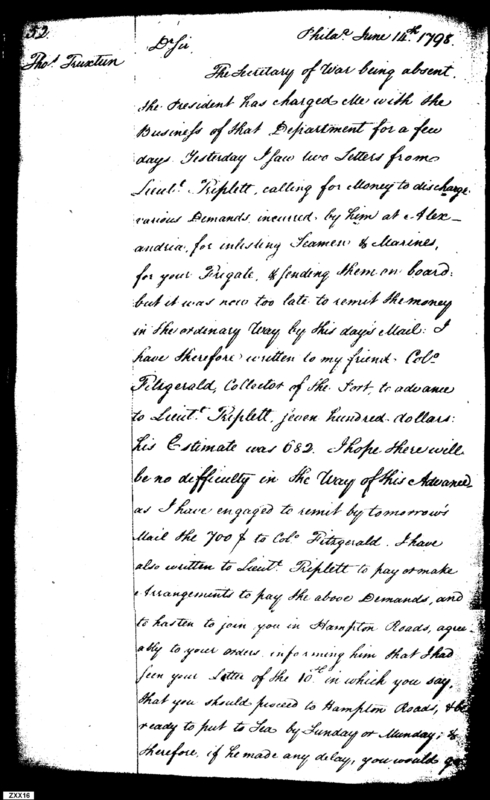 52
Thoˢ Truxtun
Philaᵃ June 14ᵗʰ 1798.
Dʳ Sir.
The Secretary of War being absent.
the President has charged Me with the
Business of that Department for a few
days Yesterday I saw two Letters from
Lieuᵗ Triplett, calling for Money to discharge
various Demands, incured by him at Alex-
andria, for inlisting Seamen & Marines,
for your Frigate, & sending them on board:
but it was now too late to remit the money
in the ordinary Way by this day's Mail: I
have therefore written to my friend Colᵒ
Fitzgerald, Collector of the Port, to advance
to Lieuᵗ Triplett, seven hundred dollars:
his Estimate was 682. I hope there will
be no difficulty in the Way of this Advance
as I have engaged to remit by tomorrow's
Mail the 700 $ to Colᵒ Fitzgerald. I have
also written to Lieuᵗ Triplett to pay or make
Arrangements to pay the above Demands, and
to hasten to join you in Hampton Roads, agree-
ably to your orders, informing him that I had
seen your Letter of the 10ᵗʰ in which you say,
that you should proceed to Hampton Roads, & be
ready to put to Sea by Sunday or Munday; &
therefore, if he made any delay, you would go
ZXX16